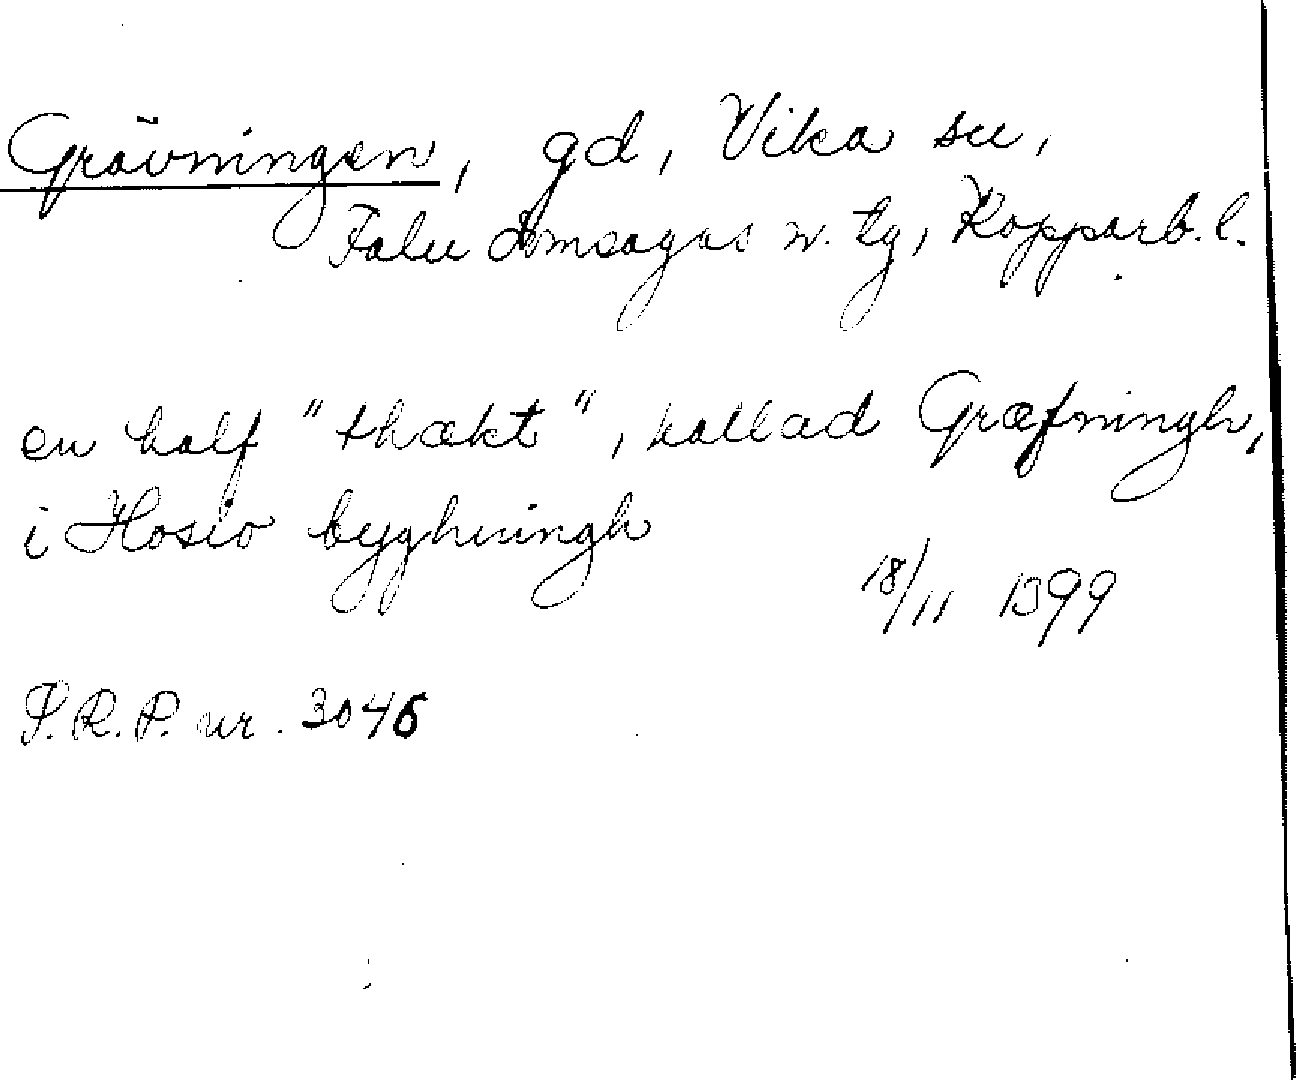 Grävningen, gd, Vika sn,
Falu domsagas n. tg, Kopparb. l.
en half "thækt", kallad Græfningh,
i Hosio byghningh
18/11 1399
S.R.P. nr. 3046